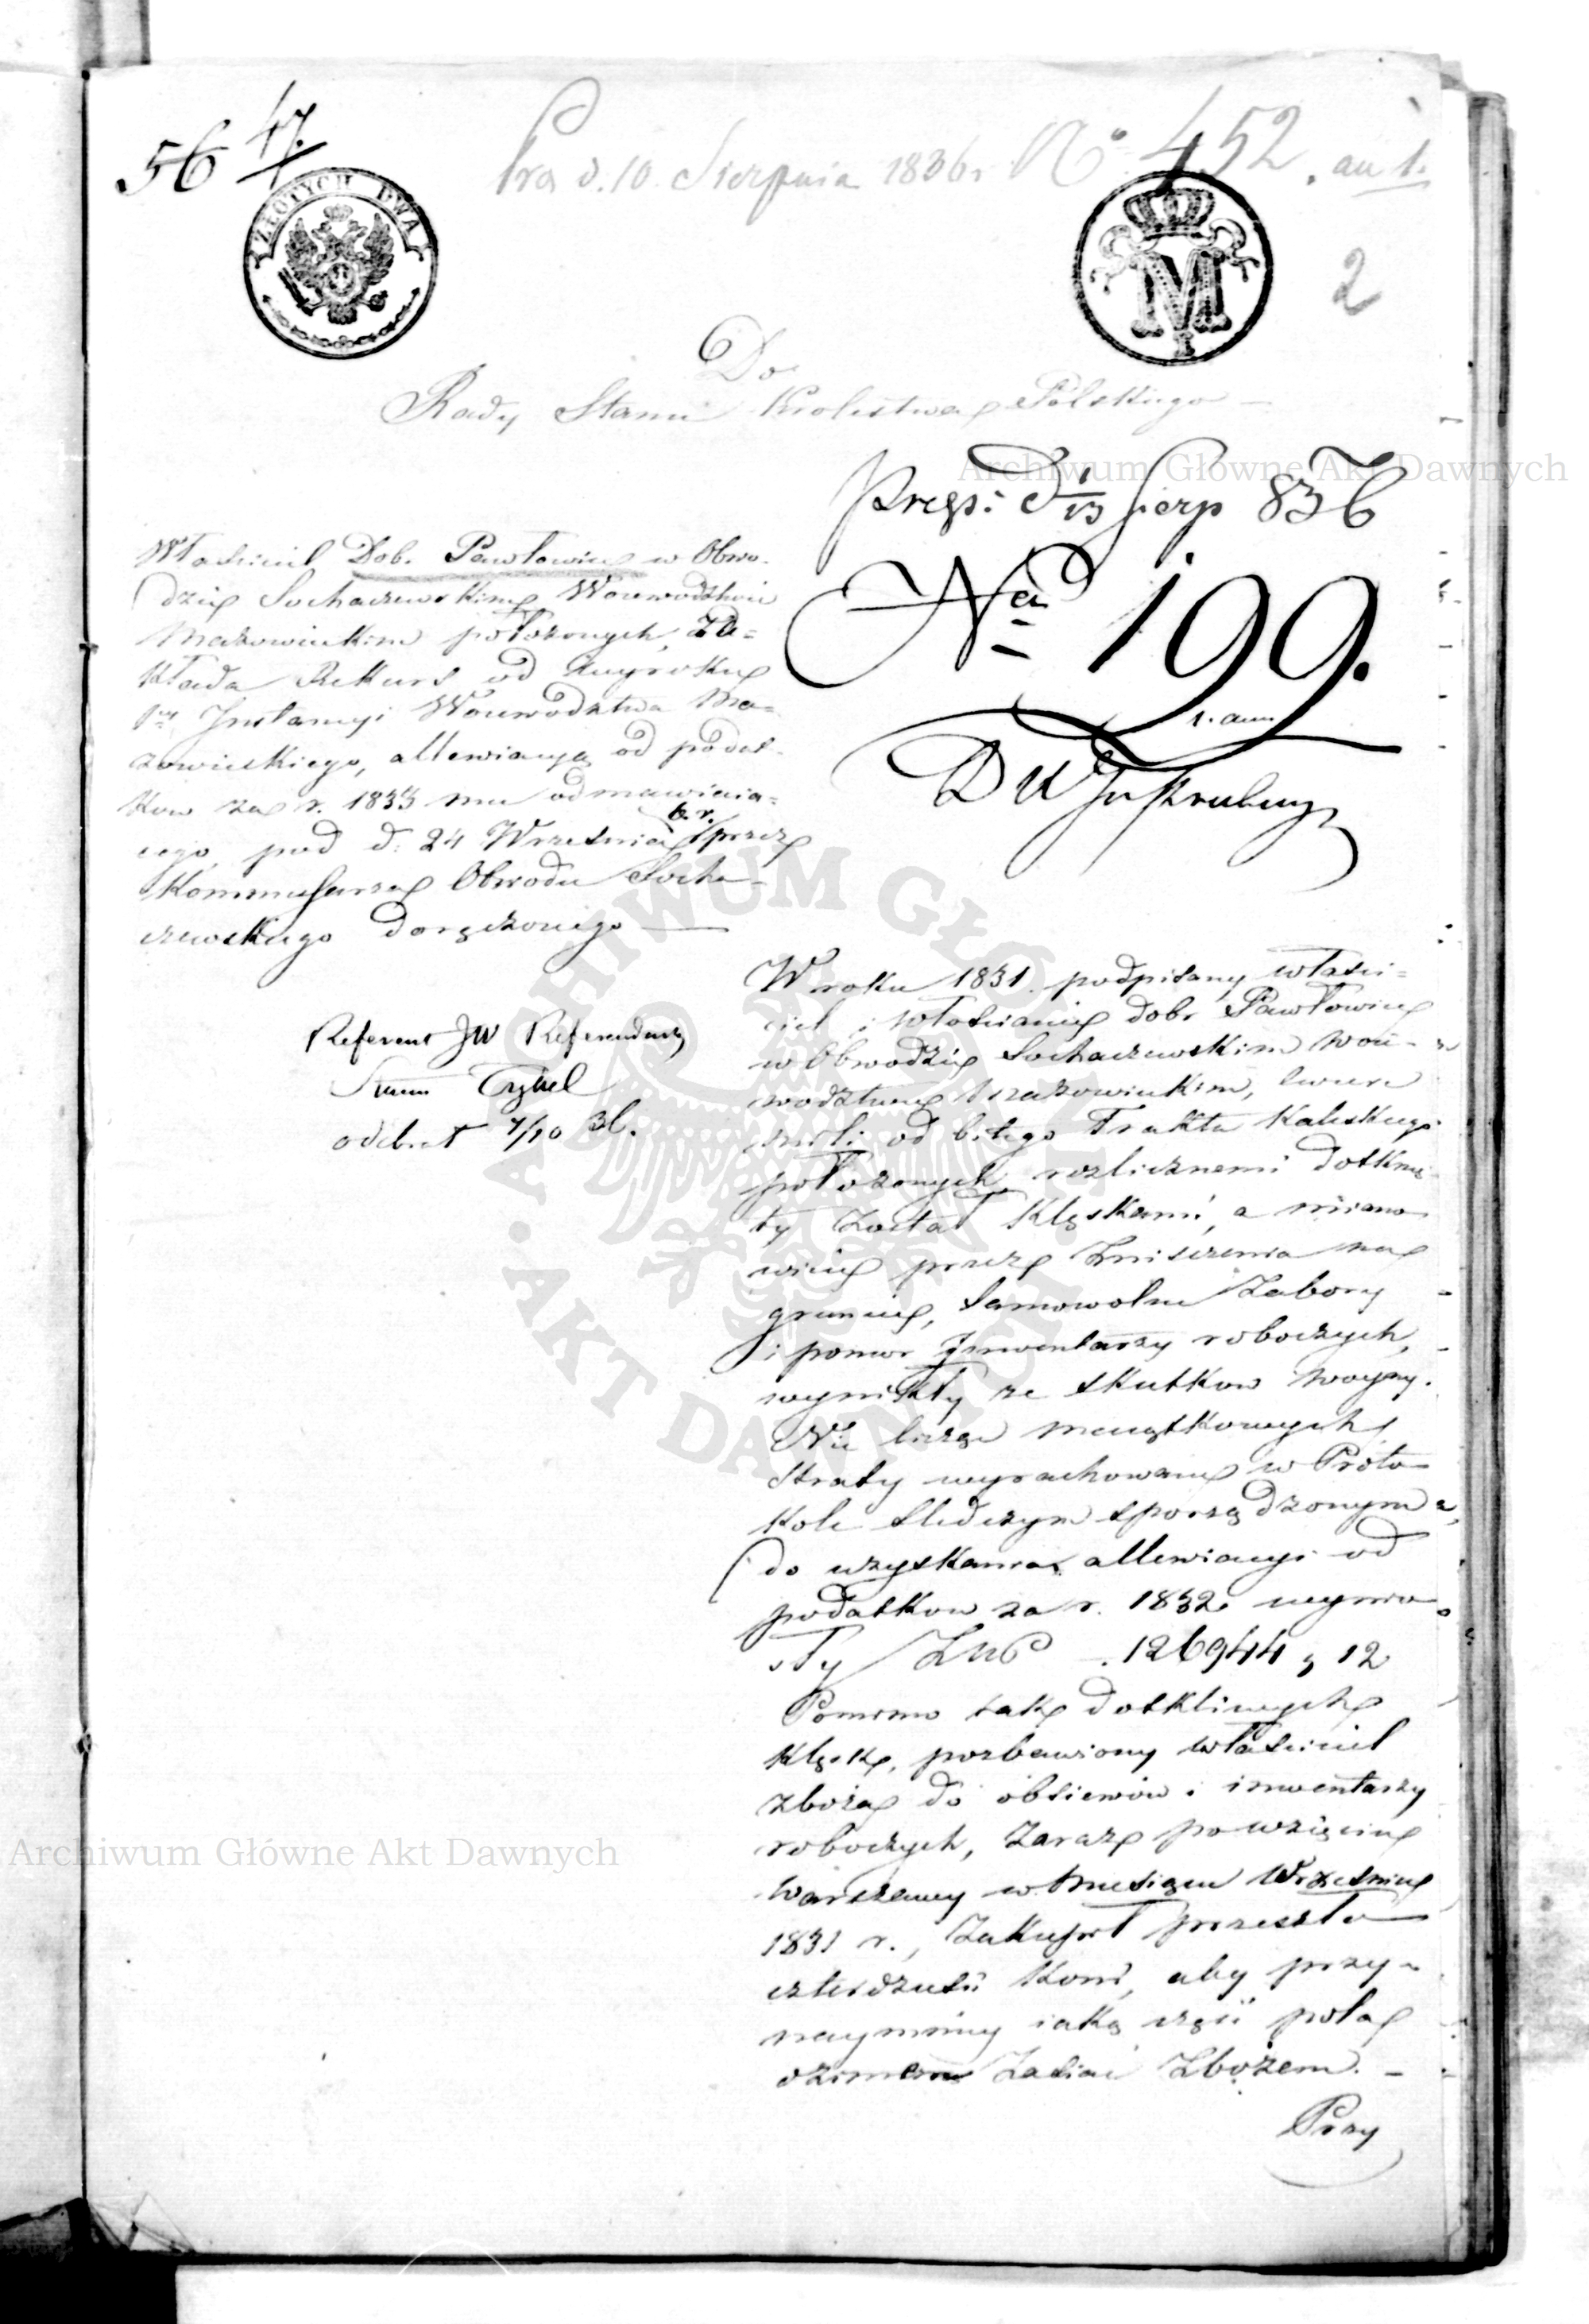 56 47.
Pra d. 10. Sierpnia 1836 r. No 452. an 1.
ZŁOTYCH DWA
M
I
2
Do
Rady Stanu Krolestwa Polskiego —
Archiwum Główne Akt Dawnych
Prez: d 1/13 Sierp 836
Nrd 199.
1. ann
Własciciel Dobr Pawłowice w Obwo-
dzie Sochaczewskim Woiewodztwie
Mazowieckim położonych, Za=
kłada Rekurs od Wyroku
1ey Instancyi Woiewodztwa Ma=
zowieckiego, allewiacyą od podat-
kow za r. 1833 mu odmawiaia=
cego, pod d. 24 Wrzesnia b. r. przez
Kommissarza Obwodu Socha-
czewskiego doręczonego —
Referent JW Referendarz
Stanu
odebrał 4/10 36.
W roku 1831. podpisany własci=
ciel i włoscianie dobr Pawłowice
w Obwodzie Sochaczewskim Woie-
wodztwie Mazowieckim, cwierc
mili od bitego Traktu Kaliskiego
położonych rozlicznemi dotknię-
ty został klęskami, a miano-
wicie przez Zniszczenia na
gruncie, samowolne Zabory
i pomor Inwentarzy roboczych,
wynikły ze skutkow woyny.
Nie licząc maiątkowych
straty wyrachowane w Proto-
kole sledczym sporządzonym
do uzyskania allewiacyi od
podatkow za r. 1832 wynio-
sły Złp. 126944 g 12
Pomimo tak dotkliwych
klęsk, pozbawiony własciciel
zboża do obsiewów i inwentarzy
roboczych, Zaraz po wzięciu
Warszawy w Miesiącu Wrzesniu
1831 r., Zakupił przeszło
czterdziesci koni, aby przy-
naymniey iaką część pola
ozimem Zasiać Zbożem. —
Przy
ARCHIWUM GŁÓWNE · AKT DAWNYCH ·
Archiwum Główne Akt Dawnych